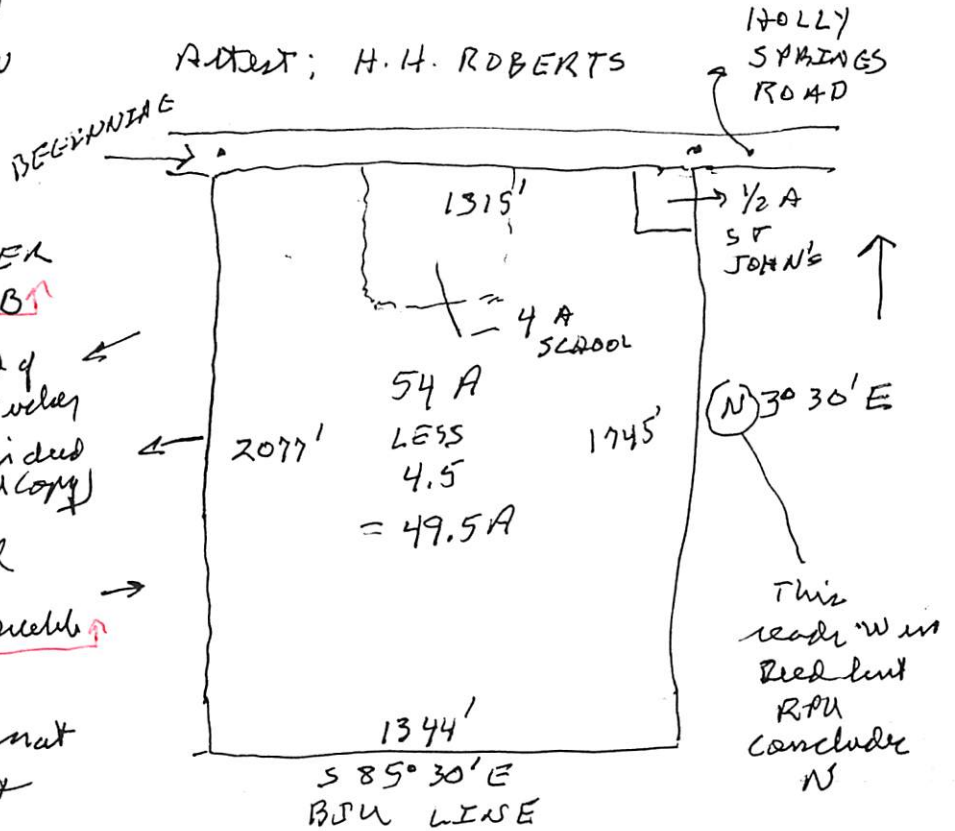 Attest; H.H. ROBERTS
HOLLY
SPRINGS
ROAD
BEGINNING
1315'
1/2 A
ST
JOHN'S
4 A
SCHOOL
ER
B↑
54 A
LESS
4.5
= 49.5 A
2077'
1745'
N 3° 30' E
This
reads "W in
Deed but
RPU
conclude
N
not
1344'
S 85° 30' E
BJU LINE